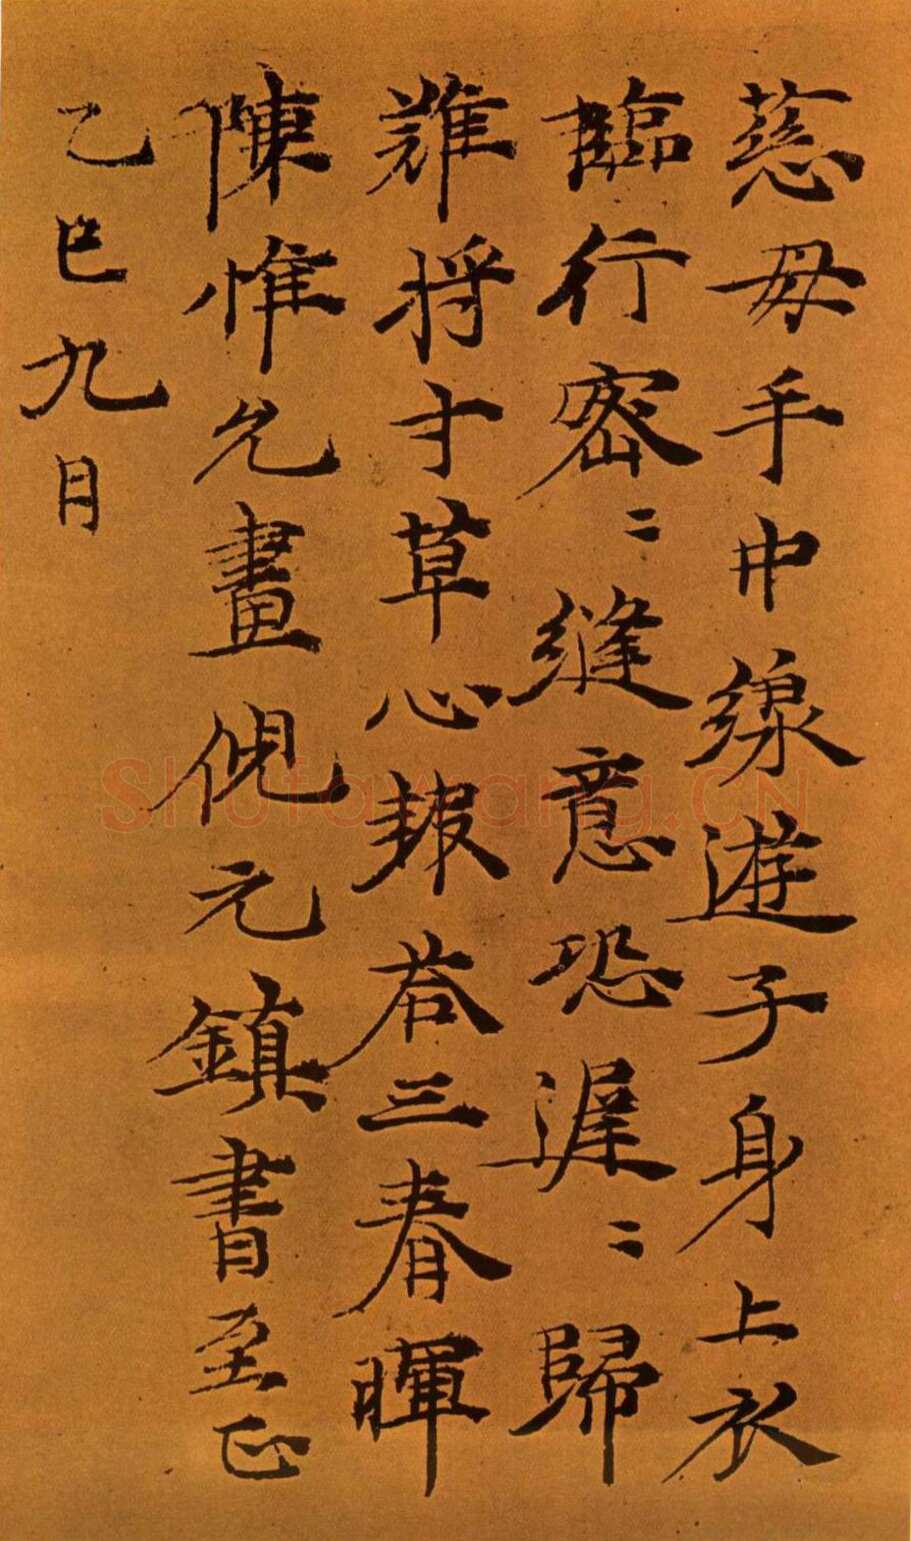 慈母手中線遊子身上衣
臨行密〻縫意恐遲〻歸
難将寸草心報荅三春暉
陳惟允畫倪元鎮書至正
乙巳九月
Shufawang.CN